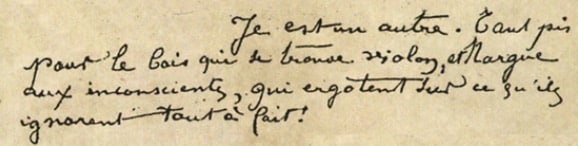 Je est un autre. Tant pis
pour le bois qui se trouve violon, et Nargue
aux inconscients, qui ergotent sur ce qu'ils
ignorent tout à fait!